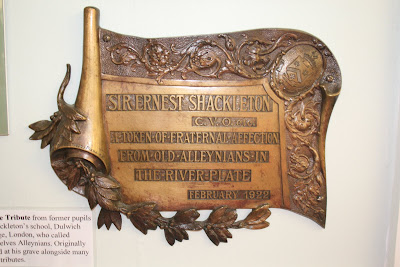 SIR ERNEST SHACKLETON
C.V.O. ETC.
A TOKEN OF FRATERNAL AFFECTION
FROM OLD ALLEYNIANS IN
THE RIVER PLATE
FEBRUARY 1922
e Tribute from former pupils
ckleton's school, Dulwich
ge, London, who called
selves Alleynians. Originally
d at his grave alongside many
tributes.